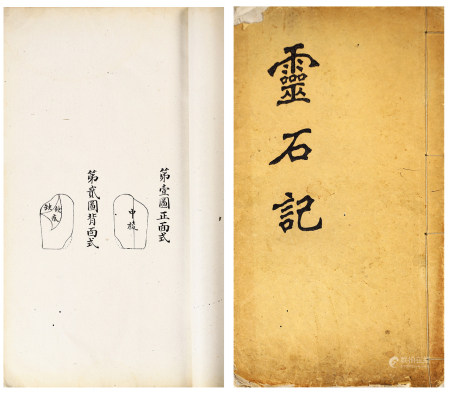 靈石記
第壹圖正面式
中棱
第貳圖背面式